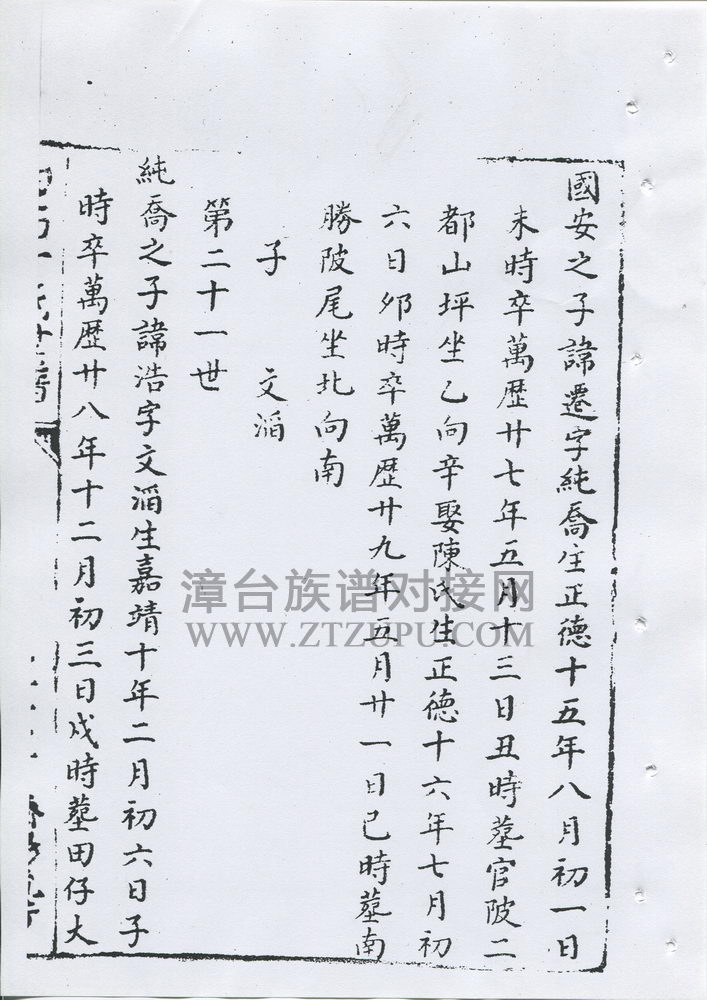 國安之子諱遷字純喬生正德十五年八月初一日
未時卒萬歷廿七年五月十三日丑時墓官陂二
都山坪坐乙向辛娶陳氏生正德十六年七月初
六日夘時卒萬歷廿九年五月廿一日巳時墓南
勝陂尾坐北向南
子 文滔
第二十一世
純喬之子諱浩字文滔生嘉靖十年二月初六日子
時卒萬歷廿八年十二月初三日戌時墓田仔大
漳台族谱对接网
WWW.ZTZUPU.COM